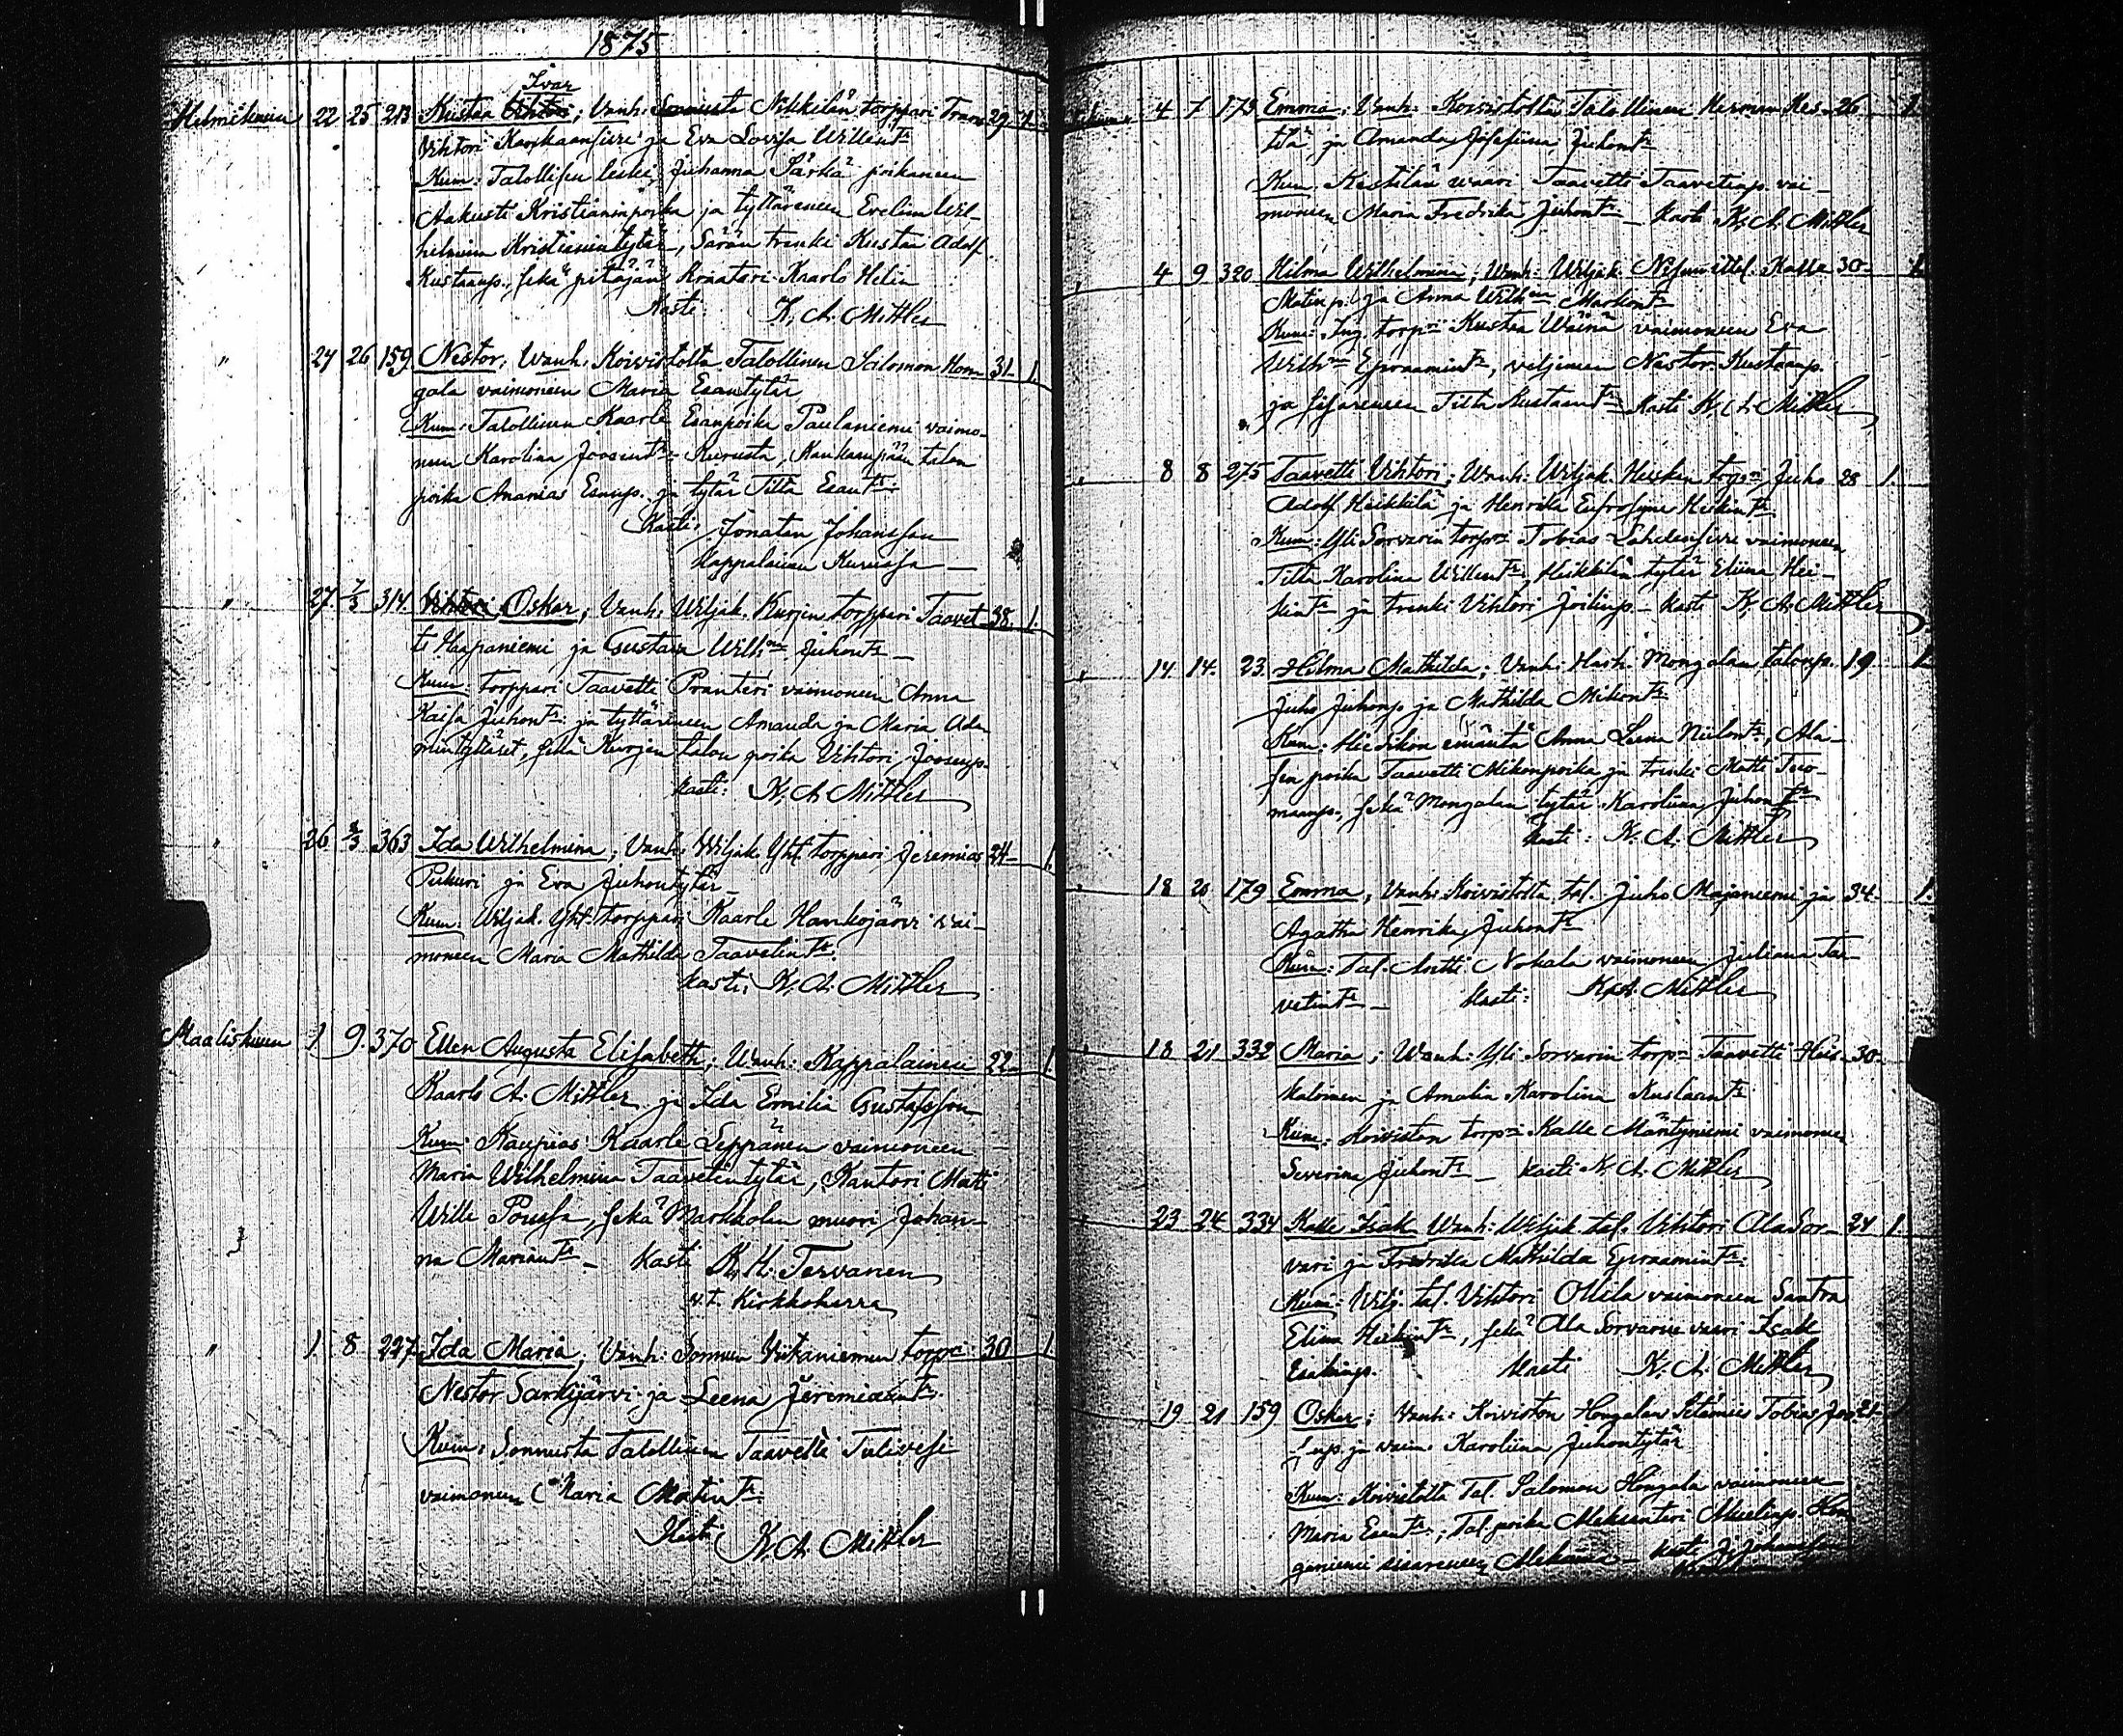 1875
Ivar
Helmikuun 22 25 213 Kustaa Vihtori; Vanh: Sonnusta Nikkilän torppari Frans 29 1.
Vihtori Kaskaansivu ja Eva Lovisa Willen tr
Kum: Talollisen leski Juhanna Särkä poikaneen
Aakusti Kristianinpoika ja tyttäreneen Evelina Wil-
helmina Kristianintytär, Särän trenki Kustaa Adolf
Kustaanp., sekä pitäjän kraatari Kaarlo Helin
Kasti: K. A. Mittler
" 24 26 159 Nestor; Wanh: Koivistolta Talollinen Salomon Hon- 31. 1.
gala vaimoneen Maria Esantytär
Kum: Talollinen Kaarle Esanpoika Paulaniemi vaimo-
neen Karolina Joosentr Kurusta, Kankaanpään talon
poika Ananias Esanp. ja tytär Tilta Esantr:
Kasti: Jonatan Johansson
Kappalainen Kurussa —
" 27 7/3 314 Vihtori Oskar; Vanh: Wiljak. Kurjen torppari Taavet- 38. 1.
ti Haapaniemi ja Gustava Wilhna Juhontr —
Kum: torppari Taavetti Pranteri vaimoneen Anna
Kaisa Juhontr: ja tyttärineen Amanda ja Maria Ada-
mintyttäret, sekä Kurjen talon poika Vihtori Joosenp.
Kasti: K. A. Mittler
" 26 8/3 363 Ida Wilhelmina; Vanh: Wiljak. Yht. torppari Jeremias 24 1.
Pukuri ja Eva Juhontytär —
Kum: Wiljak. Yht. torppari Kaarle Hankojärvi vai-
moneen Maria Mathilda Taavetintr.
Kasti: K. A. Mittler
Maaliskuun 1 9. 370 Ellen Augusta Elisabeth; Wanh: Kappalainen 22 1.
Kaarlo A. Mittler ja Ida Emilia Gustafsson
Kum: Kaupias Kaarle Seppänen vaimoneen
Maria Wilhelmina Taavetintytär, Kantori Matti
Wille Pousa, sekä Markkolan muori Johan-
na Mariantr — Kasti K. H. Tervanen
v.t. Kirkkoherra
" 1. 8 227 Ida Maria; Vanh: Sonnun Viitaniemen torpri: 30 1.
Nestor Särkijärvi ja Leena Jeremiantr.
Kum: Sonnusta Talollinen Taavetti Tulivesi
vaimoneen Maria Matintr:
Kasti K. A. Mittler
4 7 173 Emma; Vanh: Koivistolta Talollinen Herman Kes- 26 1.
tilä ja Amanda Josefiina Juhontr
Kum. Kestilän waari Taavetti Taavetinp. vai-
moneen Maria Fredrika Juhontr — Kasti K. A. Mittler
" 4 9 320 Hilma Wilhelmina; Wanh: Wiljak. Kalle 30 1.
Matinp. ja Anna Wilhna Markontr
Kum: Ing. torpri Kustaa Wäinä vaimoneen Eva
Wilhna Epraamintr, veljineen Nestor Kustaanp.
ja sisareneen Tilta Kustaantr — Kasti K. A. Mittler
" 8 8 275 Taavetti Vihtori; Wanh: Wiljak. Heiskan torpri Juho 28 1.
Adolf Heikkilä ja Henrika Eufrosyne Heikintr
Kum: Yli Sorvarin torpri Tobias Lahdensivu vaimoneen
Tilta Karolina Willentr, Heikkilän tytär Eliina Hei-
kintr ja trenki Vihtori Joelinp. — Kasti K. A. Mittler
" 14 14. 23. Hilma Mathilda; Vanh: Hark. Mongolan talonp. 19 1.
Juho Juhonp. ja Mathilda Mikontr
Kum: Hiedikon emäntä Anna Leena Niilontr, Ala-
sen poika Taavetti Mikonpoika ja trenki Matti Tuo-
maanp. sekä Mongolan tytär Karoliina Juhontr
Kasti: K. A. Mittler
" 18 20 179 Emma; Vanh: Koivistolta tal. Juho Majaniemi ja 34. 1.
Agatha Henrika Juhontr
Kum: Tal. Antti Nokala vaimoneen Juliana Taa-
vetintr — Kasti: K. A. Mittler
" 18 21 332 Maria; Wanh: Yli Sorvarin torpri Taavetti Hiis- 30.
kaloinen ja Amalia Karolina Kustaantr
Kum: Koiviston torpri Kalle Mäntyniemi vaimoneen
Severina Juhontr — Kasti K. A. Mittler
23 24 334 Kalle Isak Wanh: Wiljak. tal. Vihtori Ala Sor- 24 1.
vari ja Fredrika Mathilda Epraamintr:
Kum: Wilj. tal. Vihtori Ollila vaimoneen Santra
Eliina Heikintr, sekä Ala Sorvarin vaari Isak
Esakinp. Kasti K. A. Mittler
19 21 159 Oskar; Vanh: Koiviston Hongalan Tobias 21
ja vaim. Karoliina Juhontytär
Kum: Koivistolta Tal. Salomon Hongala vaimoneen
Maria Esantr:, Tal. poika Aleksanteri Hon-
sisareneen